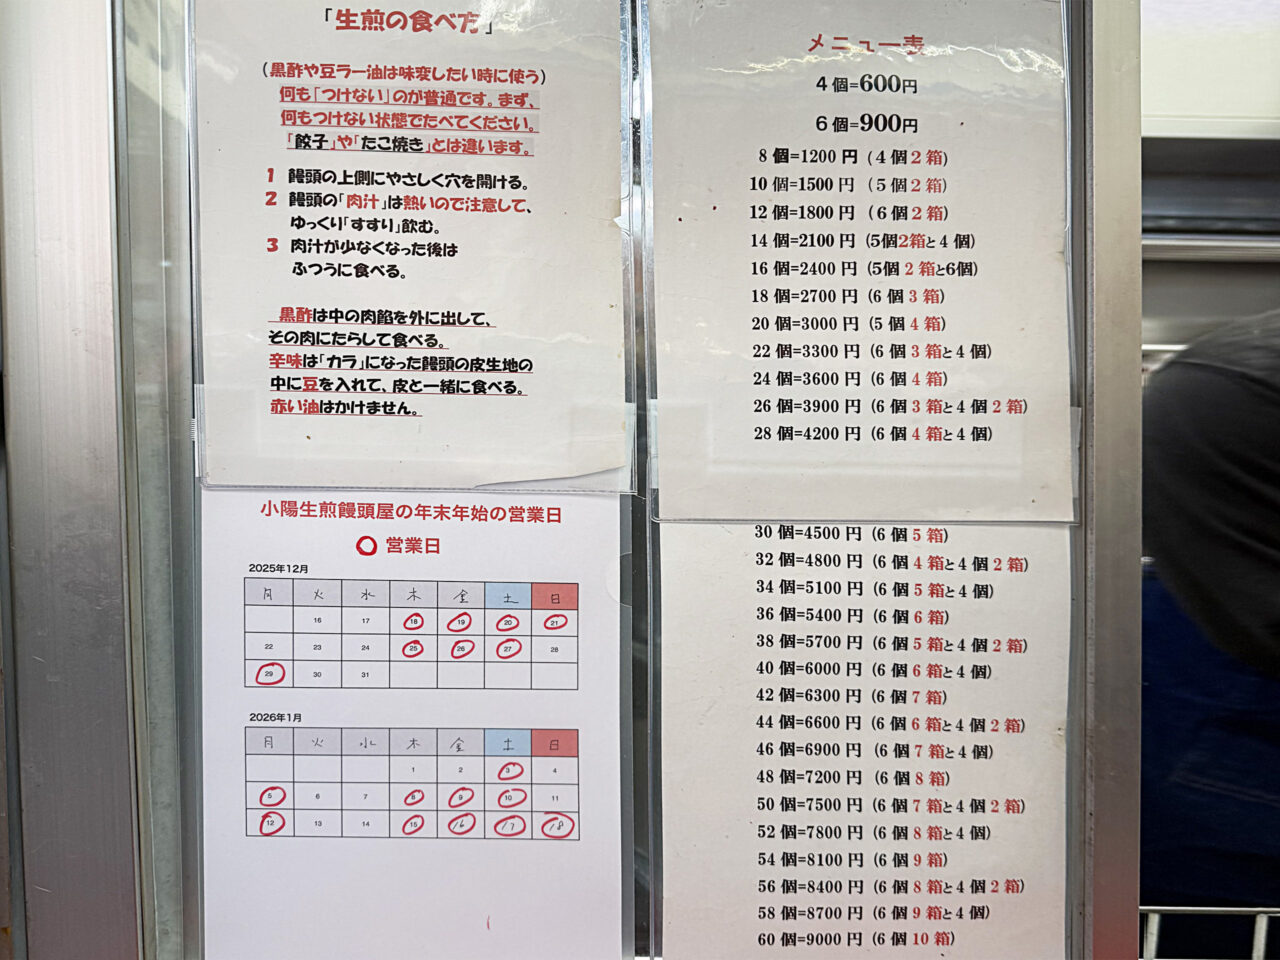 「生煎の食べ方」
(黒酢や豆ラー油は味変したい時に使う)
何も「つけない」のが普通です。まず、
何もつけない状態でたべてください。
「餃子」や「たこ焼き」とは違います。
1 饅頭の上側にやさしく穴を開ける。
2 饅頭の「肉汁」は熱いので注意して、
ゆっくり「すすり」飲む。
3 肉汁が少なくなった後は
ふつうに食べる。
黒酢は中の肉餡を外に出して、
その肉にたらして食べる。
辛味は「カラ」になった饅頭の皮生地の
中に豆を入れて、皮と一緒に食べる。
赤い油はかけません。
小陽生煎饅頭屋の年末年始の営業日
〇 営業日
2025年12月
月 火 水 木 金 土 日
16 17 18 19 20 21
22 23 24 25 26 27 28
29 30 31
2026年1月
月 火 水 木 金 土 日
1 2 3 4
5 6 7 8 9 10 11
12 13 14 15 16 17 18
メニュー表
4個=600円
6個=900円
8個=1200円(4個2箱)
10個=1500円(5個2箱)
12個=1800円(6個2箱)
14個=2100円(5個2箱と4個)
16個=2400円(5個2箱と6個)
18個=2700円(6個3箱)
20個=3000円(5個4箱)
22個=3300円(6個3箱と4個)
24個=3600円(6個4箱)
26個=3900円(6個3箱と4個2箱)
28個=4200円(6個4箱と4個)
30個=4500円(6個5箱)
32個=4800円(6個4箱と4個2箱)
34個=5100円(6個5箱と4個)
36個=5400円(6個6箱)
38個=5700円(6個5箱と4個2箱)
40個=6000円(6個6箱と4個)
42個=6300円(6個7箱)
44個=6600円(6個6箱と4個2箱)
46個=6900円(6個7箱と4個)
48個=7200円(6個8箱)
50個=7500円(6個7箱と4個2箱)
52個=7800円(6個8箱と4個)
54個=8100円(6個9箱)
56個=8400円(6個8箱と4個2箱)
58個=8700円(6個9箱と4個)
60個=9000円(6個10箱)